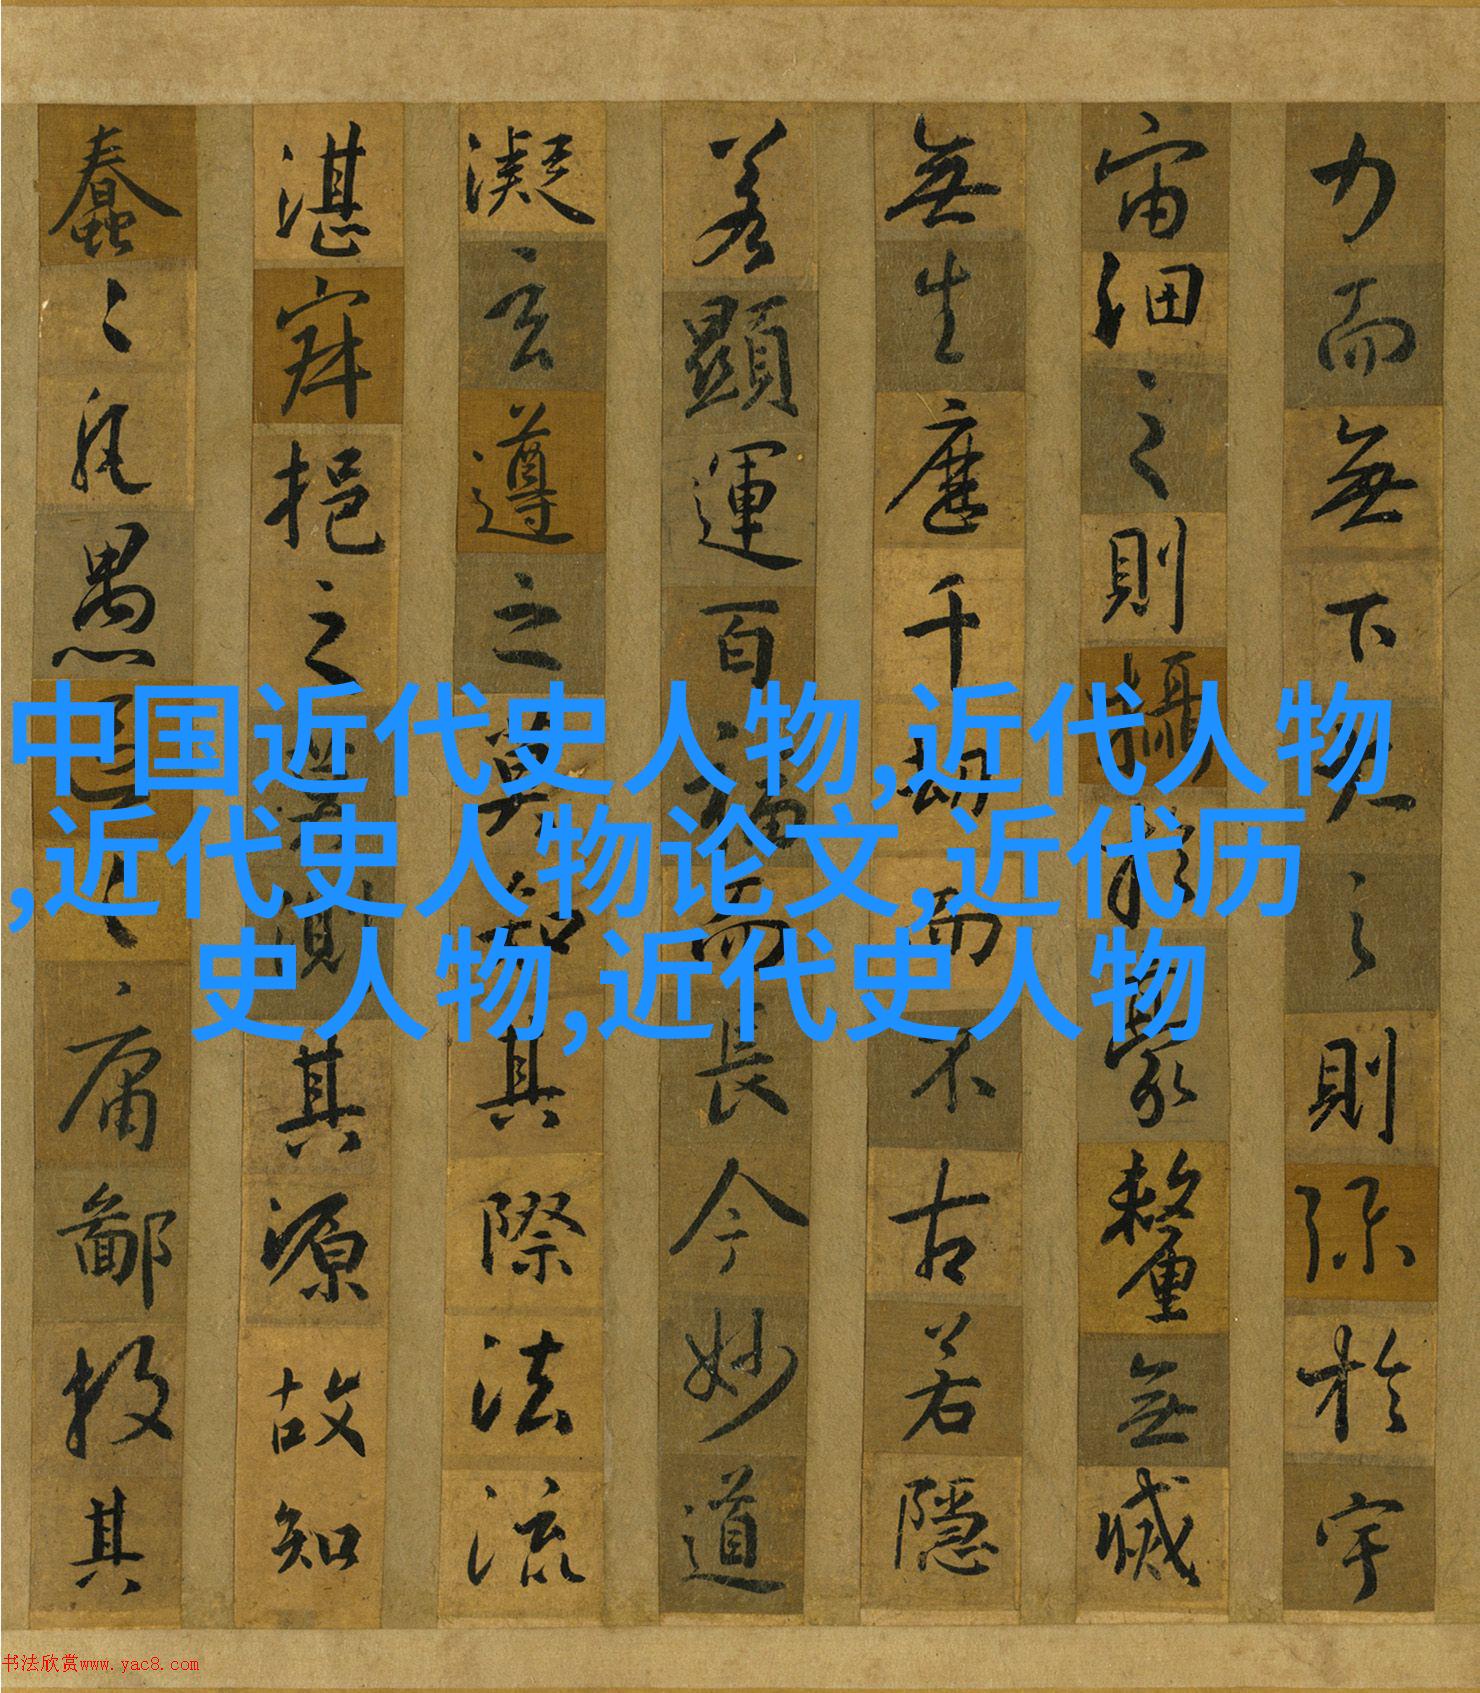 力而無下大之則弥於宇
宙細之則攝於豪釐無滅
無生歷千劫而不古若隱
若顯運百福而長今妙道
凝玄遵之莫知其際法流
湛寂挹之莫測其源故知
蠢々凡愚區々庸鄙投其
中国近代史人物,近代人物
,近代史人物论文,近代历
史人物,近代史人物
书法欣赏www.yac8.com